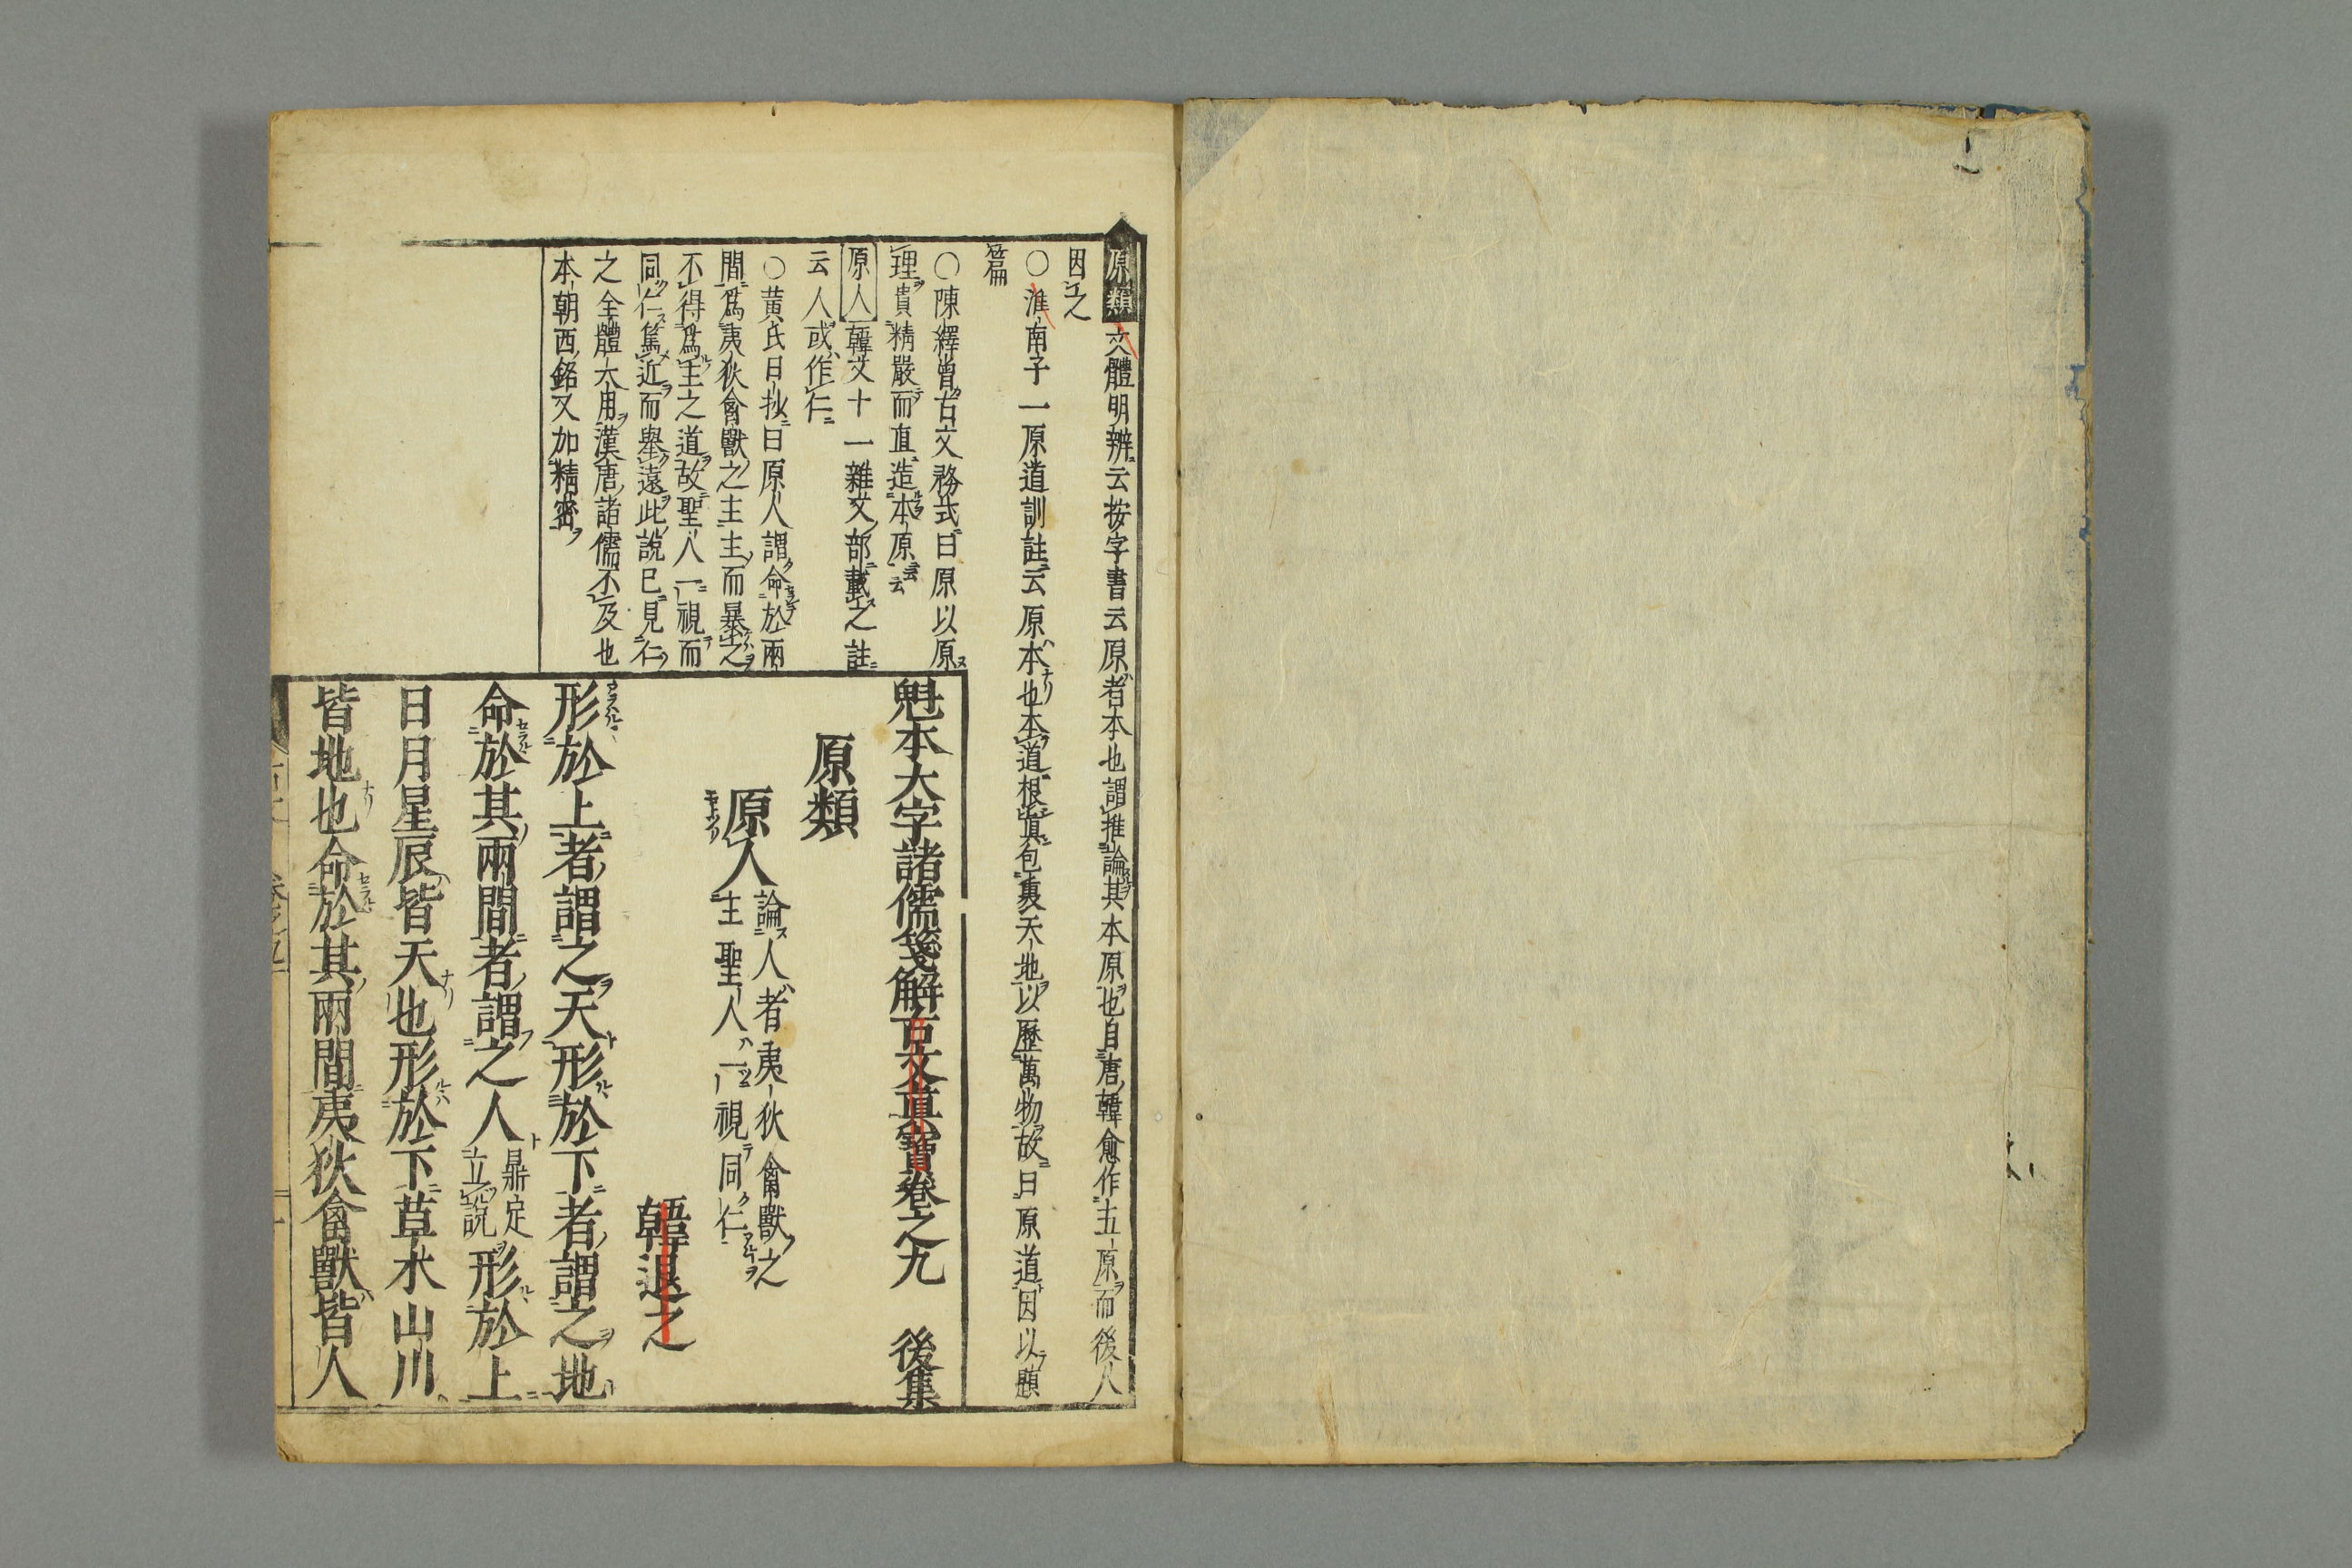 原類 文體明辨云按字書云原者本也謂推論其本原也自唐韓愈作五原而後人
因之
○淮南子一原道訓註云原本也本道根眞包裹天地以歷萬物故曰原道因以題
篇
○陳繹曾古文務式曰原以原
理貴精嚴而直造本原云云
原人 韓文十一雜文部載之註
云人或作仁
○黄氏日抄曰原人謂命於兩
間爲夷狄禽獸之主主而暴之
不得爲主之道故聖人一視而
同仁篤近而舉遠此説已見仁
之全體大用漢唐諸儒不及也
本朝西銘又加精密
魁本大字諸儒箋解古文眞寳卷之九 後集
原類
原人 論人者夷狄禽獸之
主聖人一視同仁
韓退之
形於上者謂之天形於下者謂之地
命於其兩間者謂之人 鼎定立説 形於上
日月星辰皆天也形於下草木山川
皆地也命於其兩間夷狄禽獸皆人